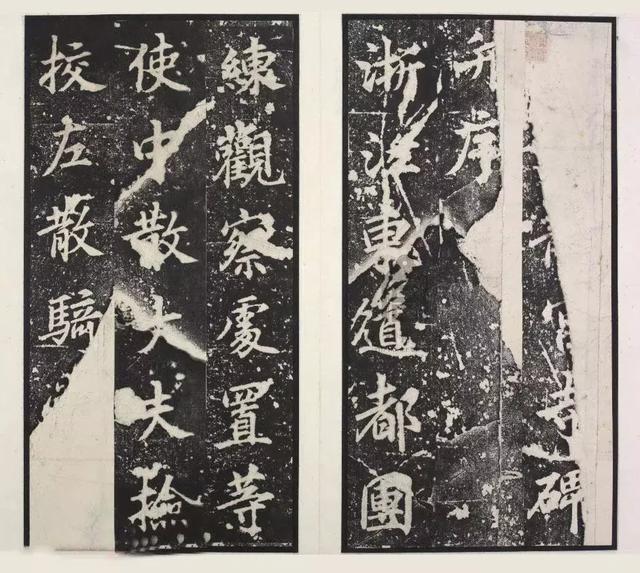 寺碑
并序
浙江東道都團
練觀察處置等
使中散大夫撿
挍左散騎